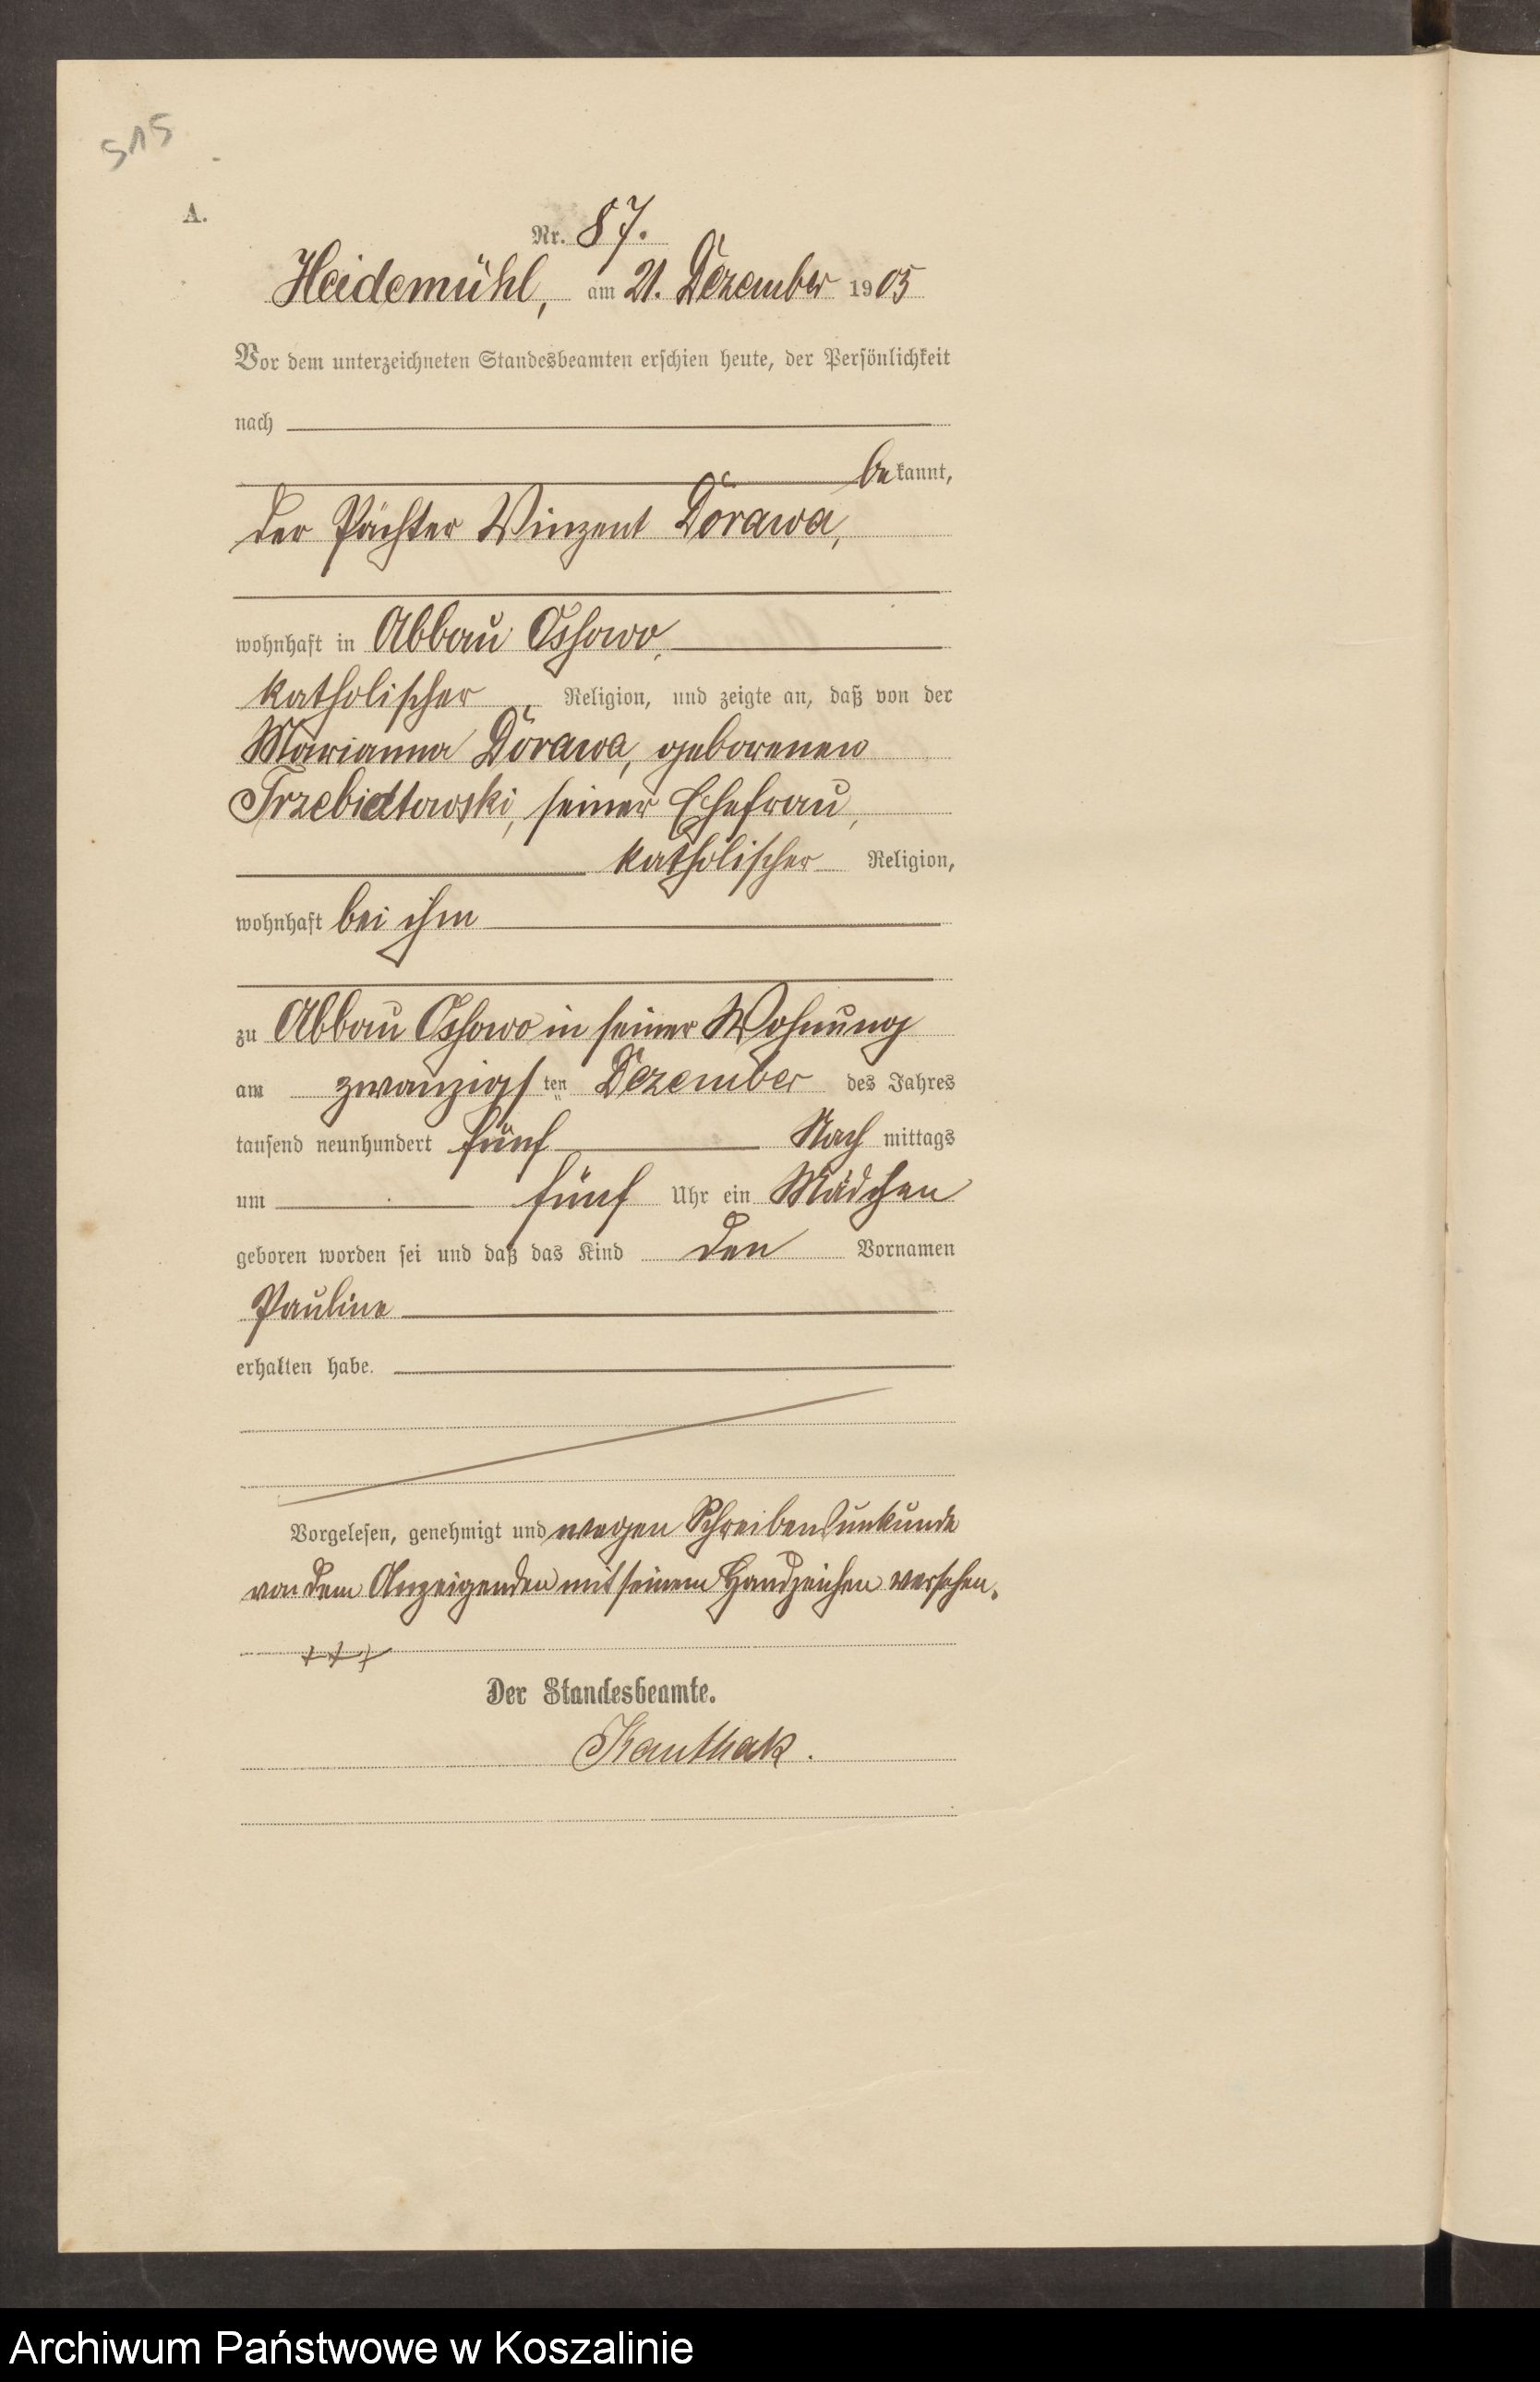 515
A.
Nr. 87.
Heidemühl, am 21. Dezember 1905
Vor dem unterzeichneten Standesbeamten erschien heute, der Persönlichkeit
nach
bekannt,
der Pächter Vinzent Dorawa,
wohnhaft in Abbau Ossowo,
katholischer Religion, und zeigte an, daß von der
Marianna Dorawa, geborenen
seiner Ehefrau,
katholischer Religion,
wohnhaft bei ihm
zu Abbau Ossowo in seiner Wohnung
am zwanzigsten Dezember des Jahres
tausend neunhundert fünf Nachmittags
um fünf Uhr ein Mädchen
geboren worden sei und daß das Kind den Vornamen
Pauline
erhalten habe.
Vorgelesen, genehmigt und wegen Schreibensunkunde
von dem Anzeigenden mit seinem Handzeichen versehen.
+++
Der Standesbeamte.
Kauthak.
Archiwum Państwowe w Koszalinie